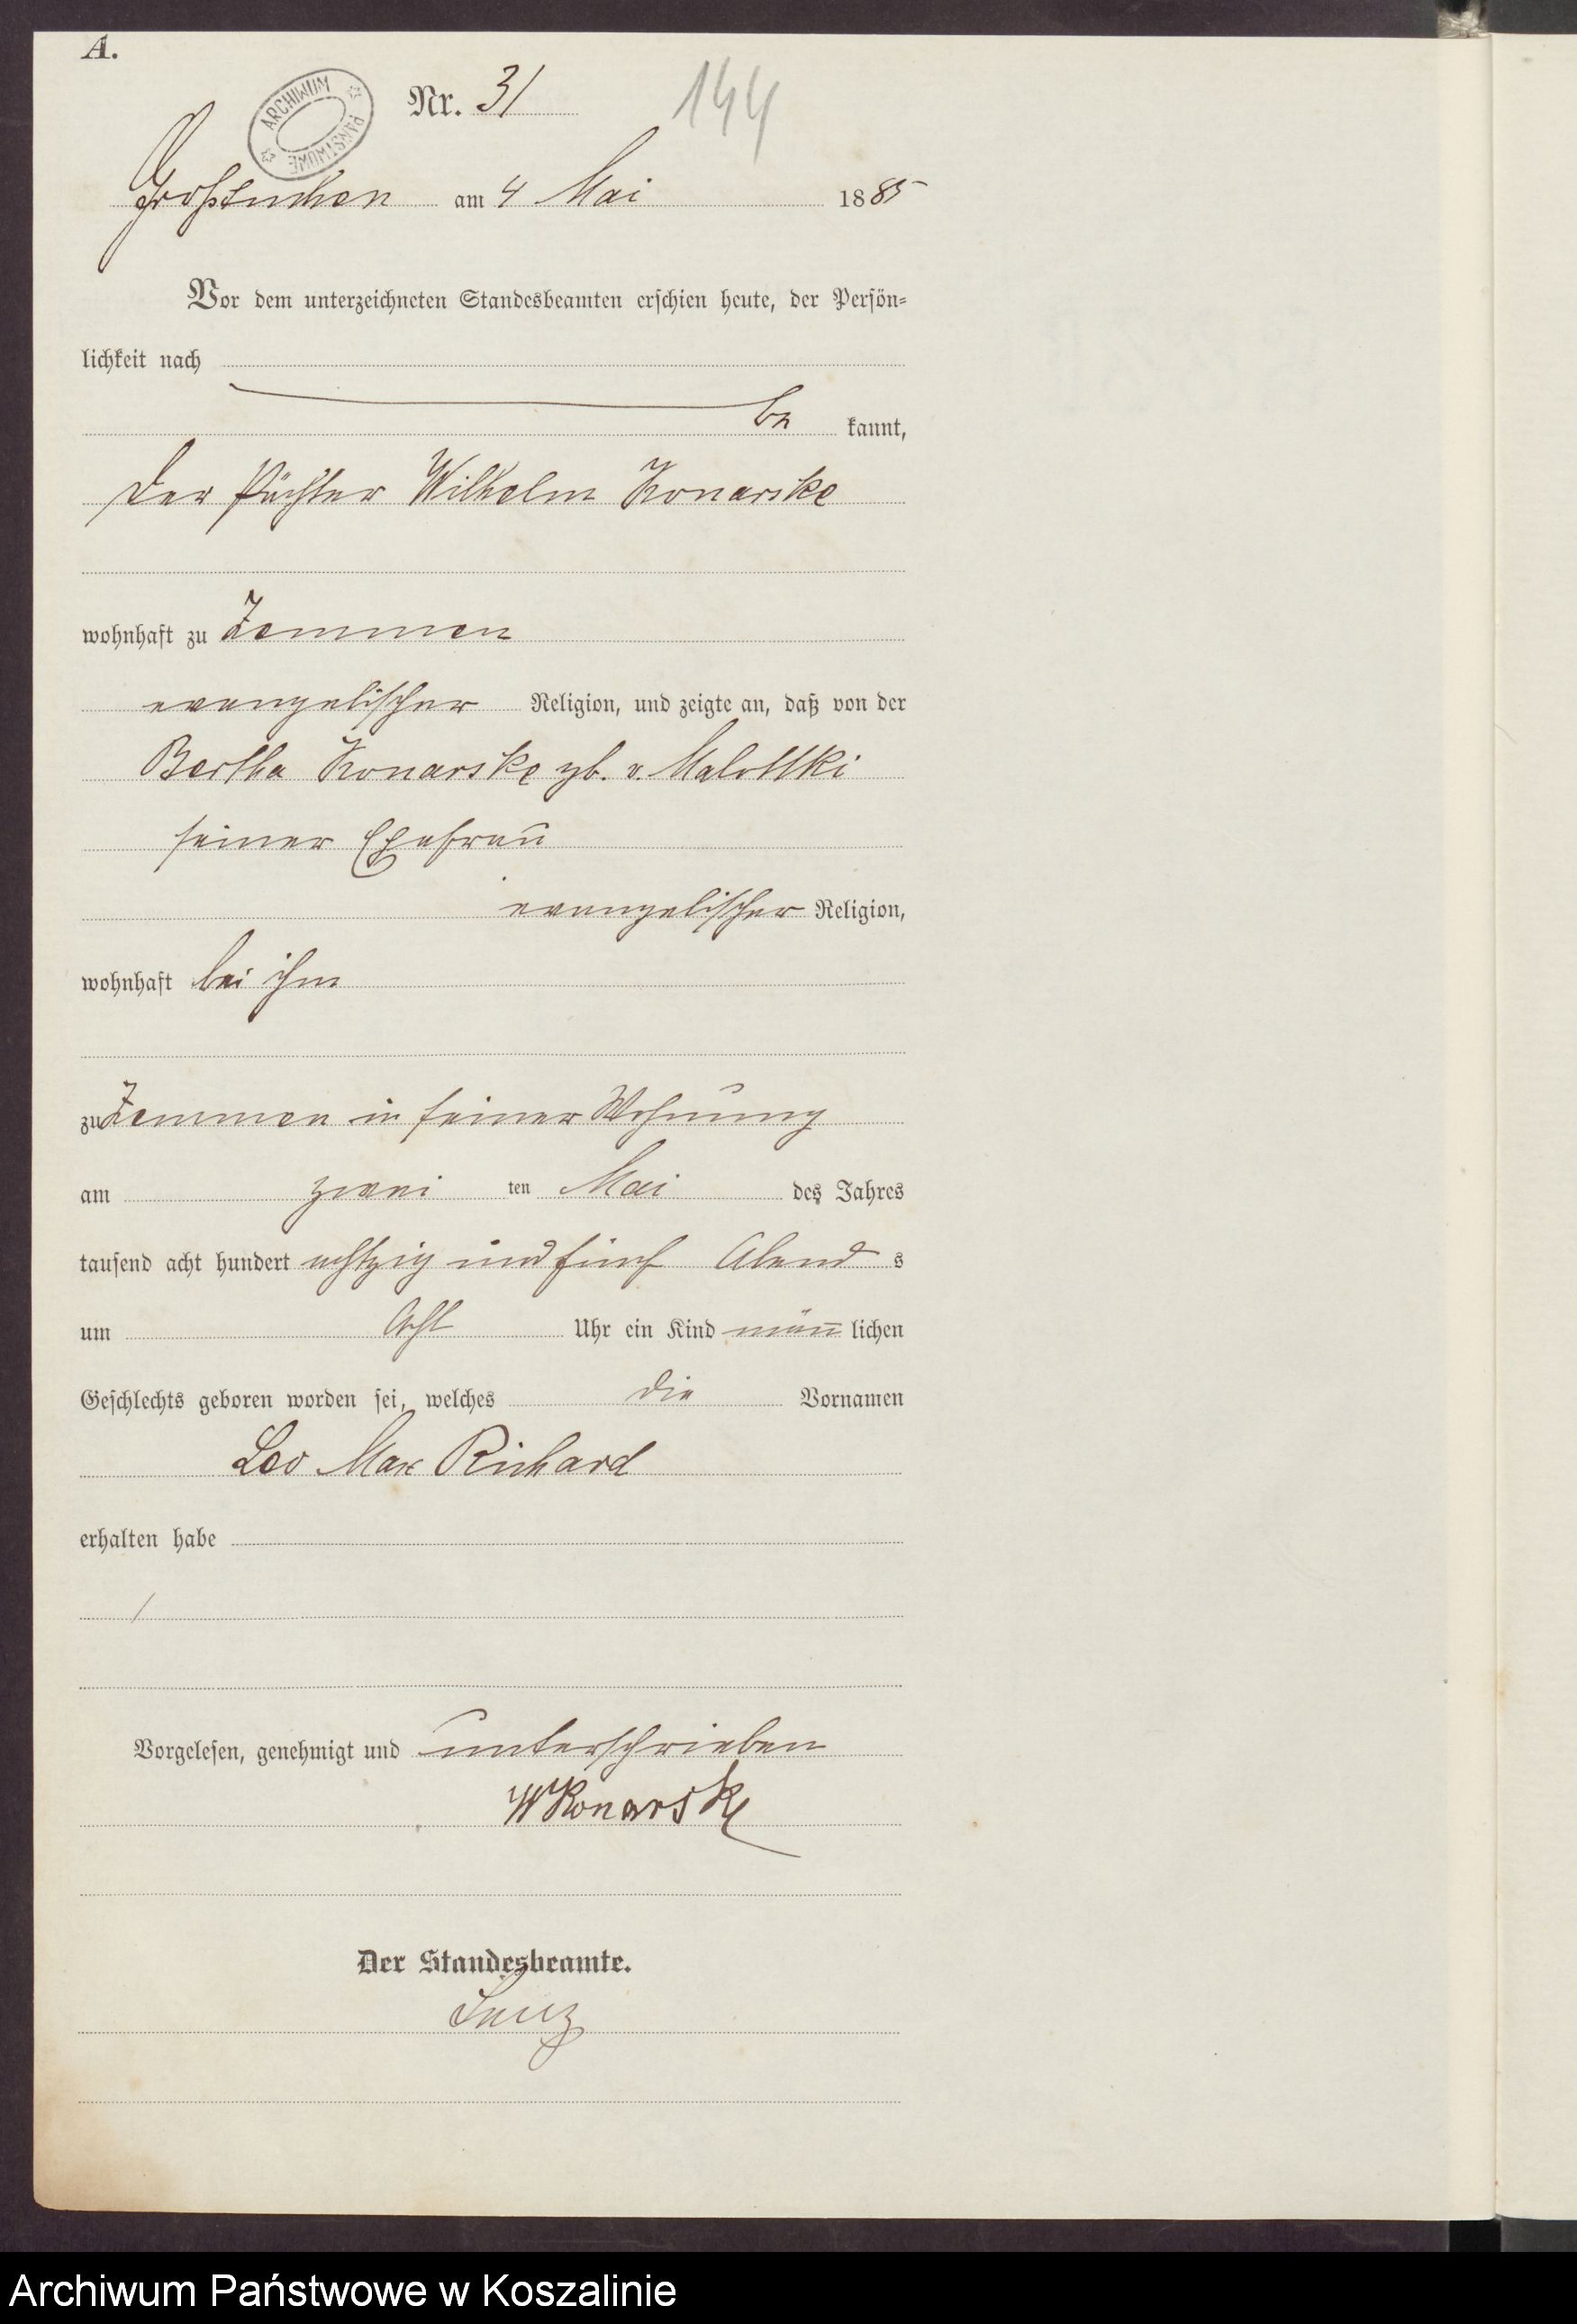 A.
ARCHIWUM PAŃSTWOWE
Nr. 31
144
Großtuchen am 4 Mai 1885
Vor dem unterzeichneten Standesbeamten erschien heute, der Persön-
lichkeit nach
be kannt,
der Pächter Wilhelm Konarske
wohnhaft zu Zemmen
evangelischer Religion, und zeigte an, daß von der
Bertha Konarske geb. v. Malottki
seiner Ehefrau
evangelischer Religion,
wohnhaft bei ihm
zu Zemmen in seiner Wohnung
am zwei ten Mai des Jahres
tausend acht hundert achtzig und fünf Abend s
um Acht Uhr ein Kind männ lichen
Geschlechts geboren worden sei, welches die Vornamen
Leo Max Richard
erhalten habe
Vorgelesen, genehmigt und unterschrieben
W Konarske
Der Standesbeamte.
Archiwum Państwowe w Koszalinie